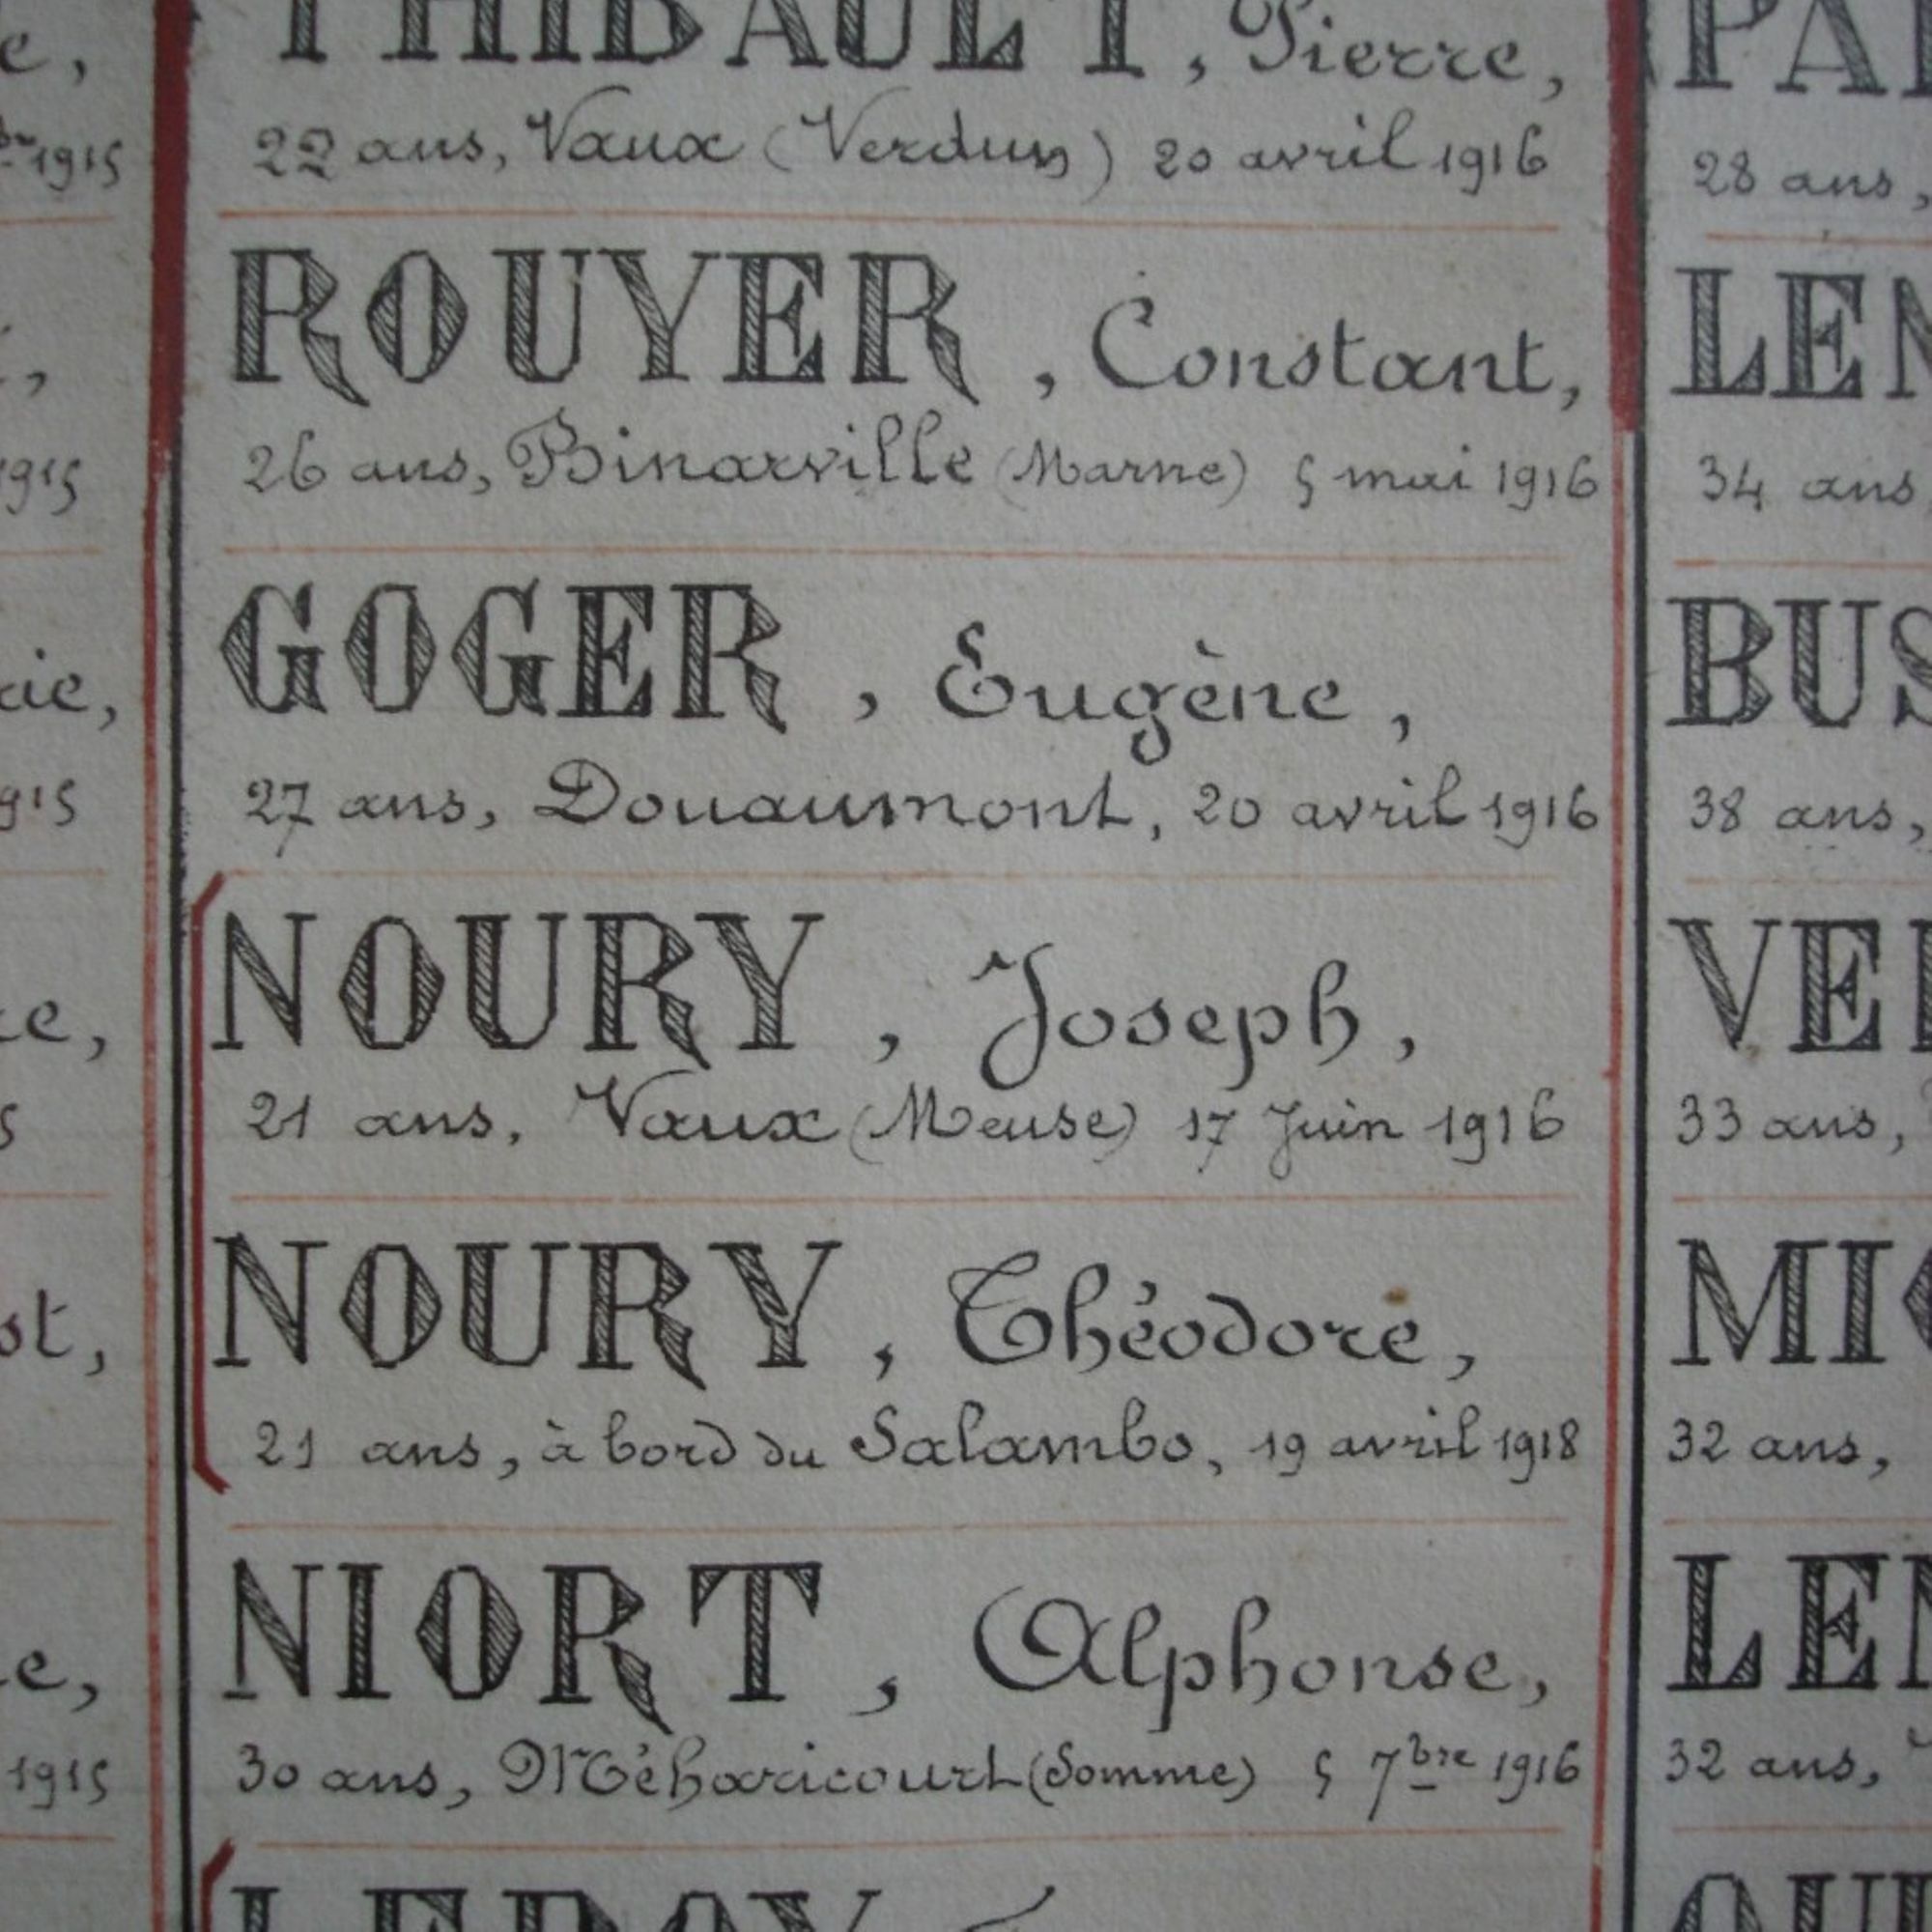 THIBAULT, Pierre,
22 ans, Vaux (Verdun) 20 avril 1916
ROUYER, Constant,
26 ans, Binarville (Marne) 5 mai 1916
GOGER, Eugène,
27 ans, Douaumont, 20 avril 1916
NOURY, Joseph,
21 ans, Vaux (Meuse) 17 Juin 1916
NOURY, Théodore,
21 ans, à bord du Salambo, 19 avril 1918
NIORT, Alphonse,
30 ans, Méharicourt (Somme) 5 7bre 1916
LEROY
1915
1915
1915
1915
28 ans,
34 ans
BUS
38 ans,
33 ans,
32 ans,
32 ans,